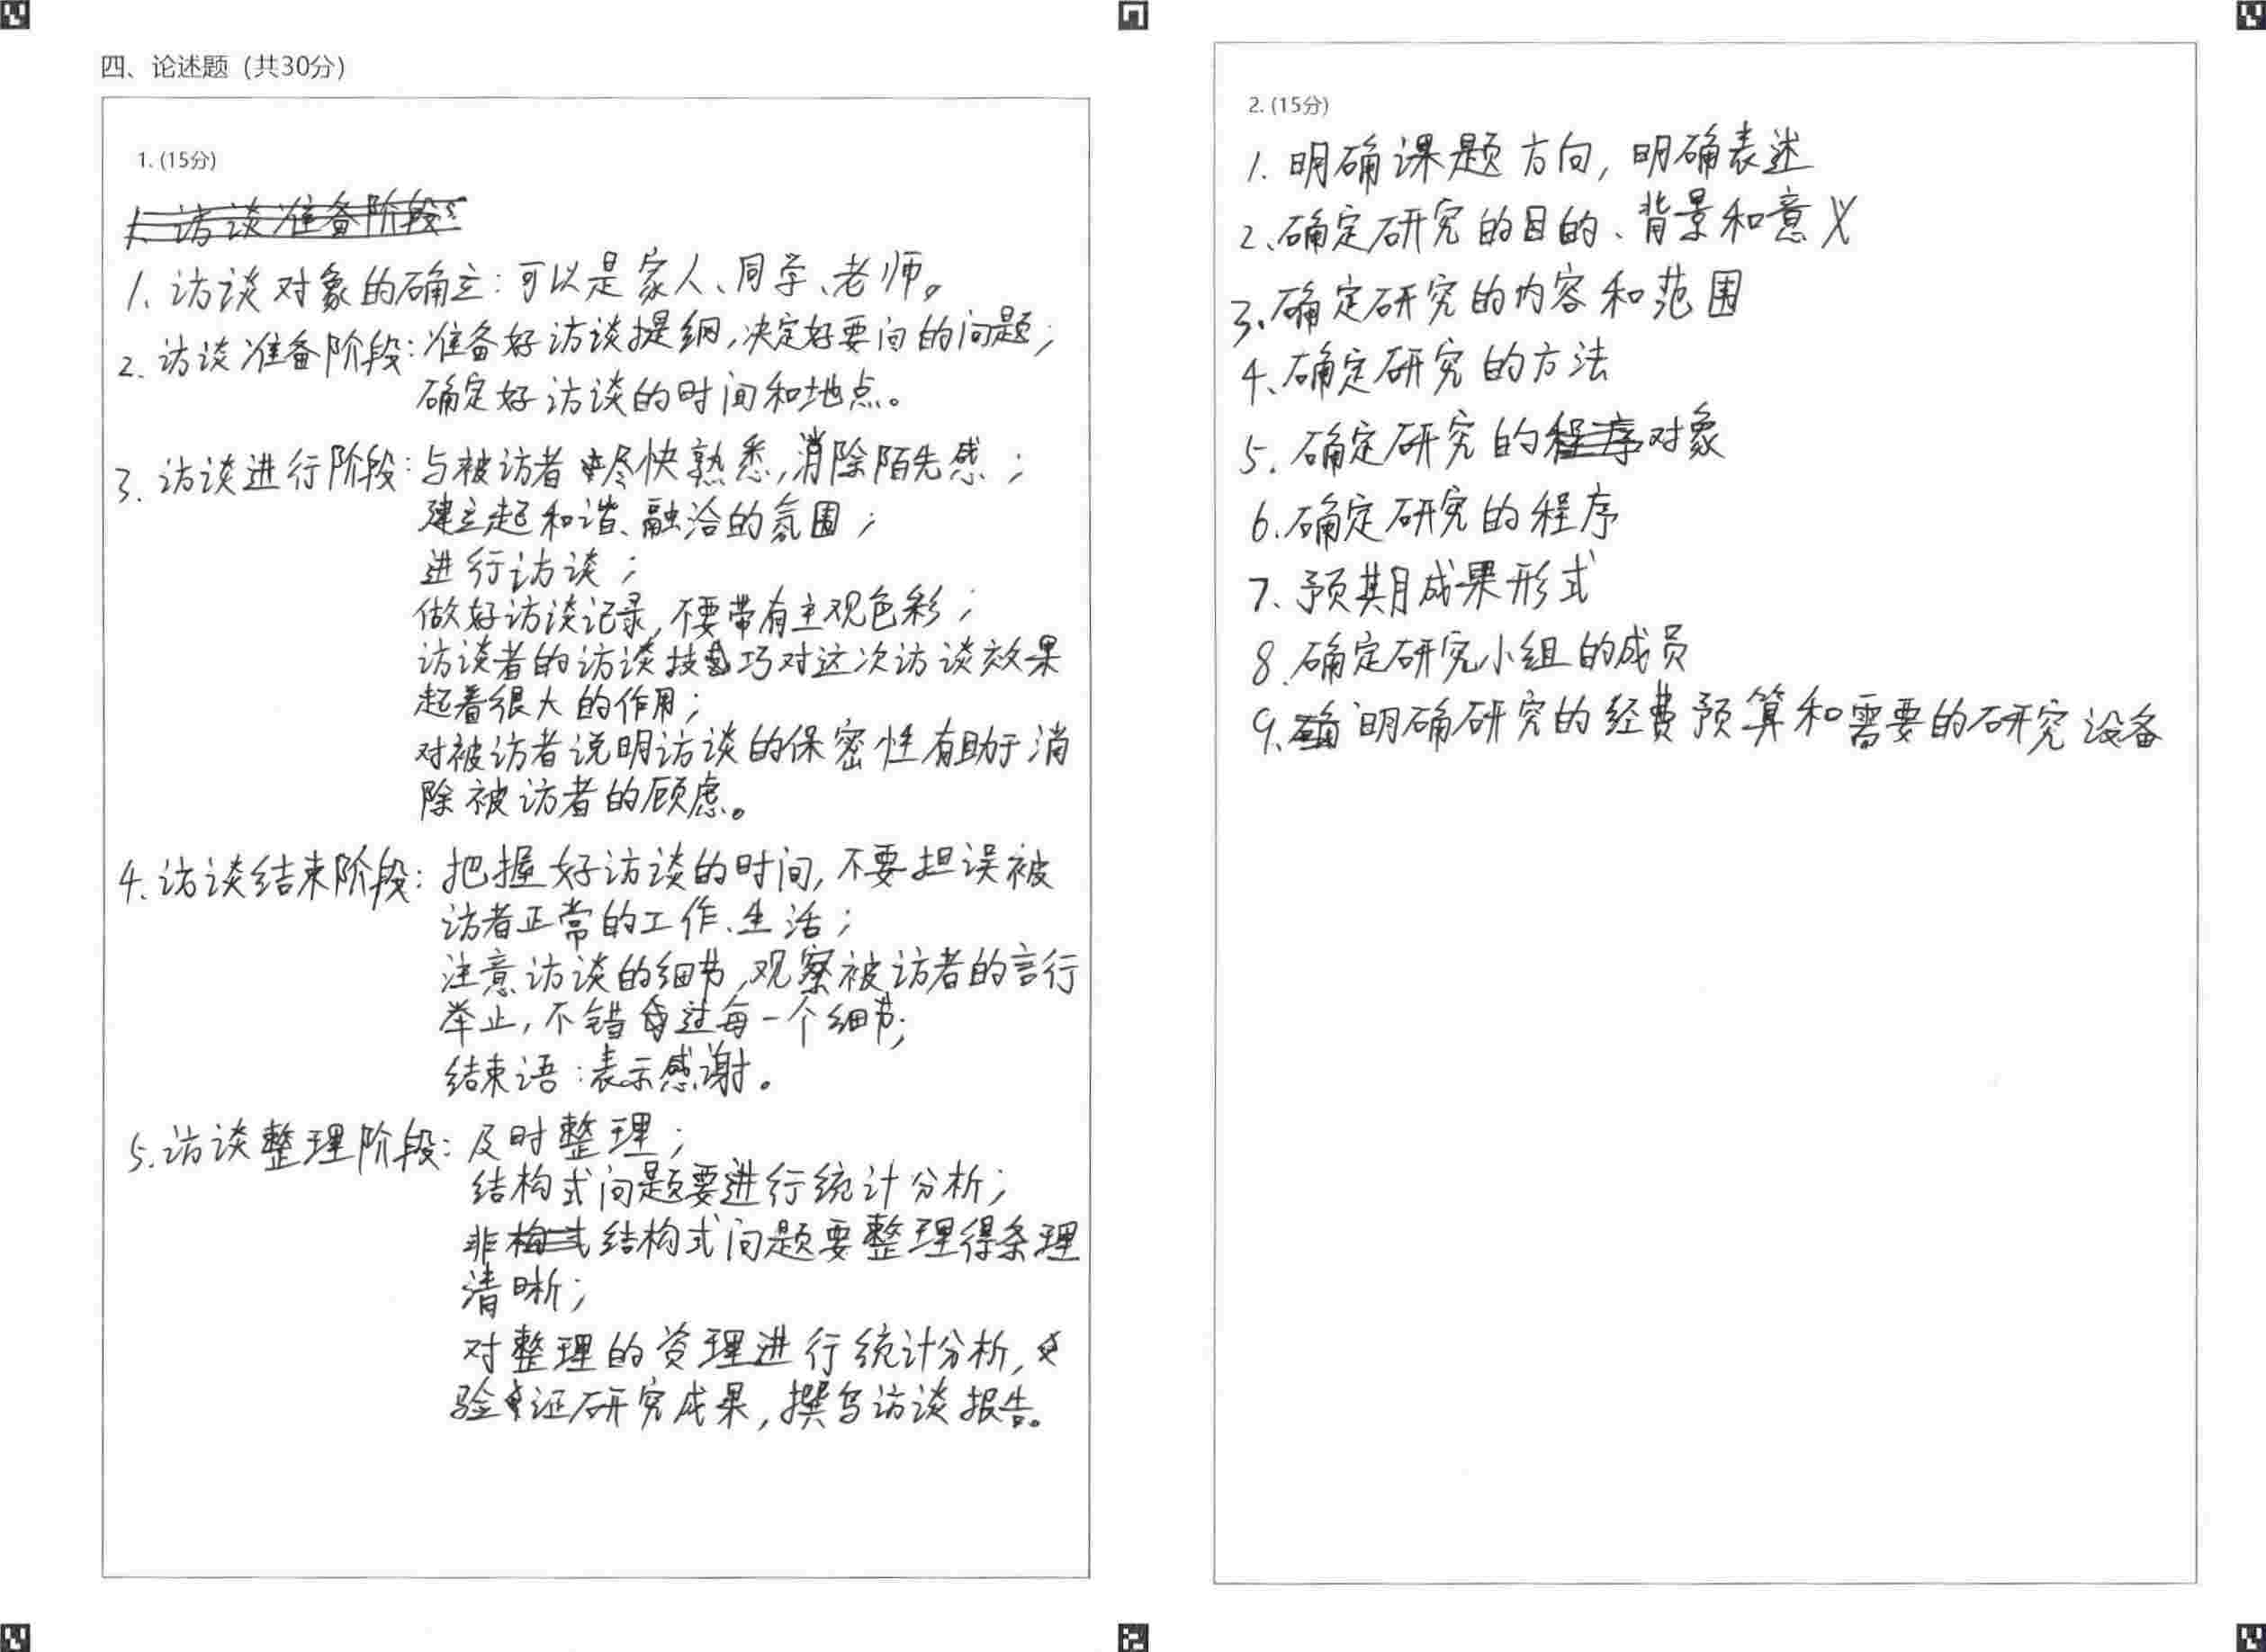 四、论述题（共30分）
1. (15分)
1. 访谈准备阶段:
1. 访谈对象的确立：可以是家人、同学、老师。
2. 访谈准备阶段：准备好访谈提纲，决定好要问的问题；
确定好访谈的时间和地点。
3. 访谈进行阶段：与被访者尽快熟悉，消除陌生感；
建立起和谐、融洽的氛围；
进行访谈；
做好访谈记录，不要带有主观色彩；
访谈者的访谈技巧对这次访谈效果
起着很大的作用；
对被访者说明访谈的保密性有助于消
除被访者的顾虑。
4. 访谈结束阶段：把握好访谈的时间，不要担误被
访者正常的工作、生活；
注意访谈的细节，观察被访者的言行
举止，不错过每一个细节；
结束语：表示感谢。
5. 访谈整理阶段：及时整理；
结构式问题要进行统计分析；
非结构式问题要整理得条理
清晰；
对整理的资理进行统计分析，
验证研究成果，撰写访谈报告。
2. (15分)
1. 明确课题方向，明确表述
2. 确定研究的目的、背景和意义
3. 确定研究的内容和范围
4. 确定研究的方法
5. 确定研究的程序对象
6. 确定研究的程序
7. 预期成果形式
8. 确定研究小组的成员
9. 明确研究的经费预算和需要的研究设备